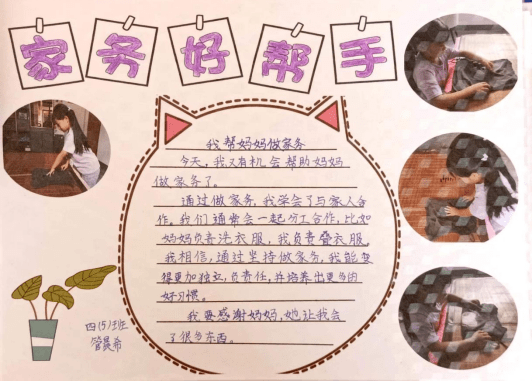 家务好帮手
我帮妈妈做家务
今天，我又有机会帮助妈妈
做家务了。
通过做家务，我学会了与家人合
作。我们通常会一起分工合作，比如
妈妈负责洗衣服，我负责叠衣服。
我相信，通过坚持做家务，我能变
得更加独立，负责任，并培养出更多的
好习惯。
我要感谢妈妈，她让我会
了很多东西。
四(5)班
管晨希